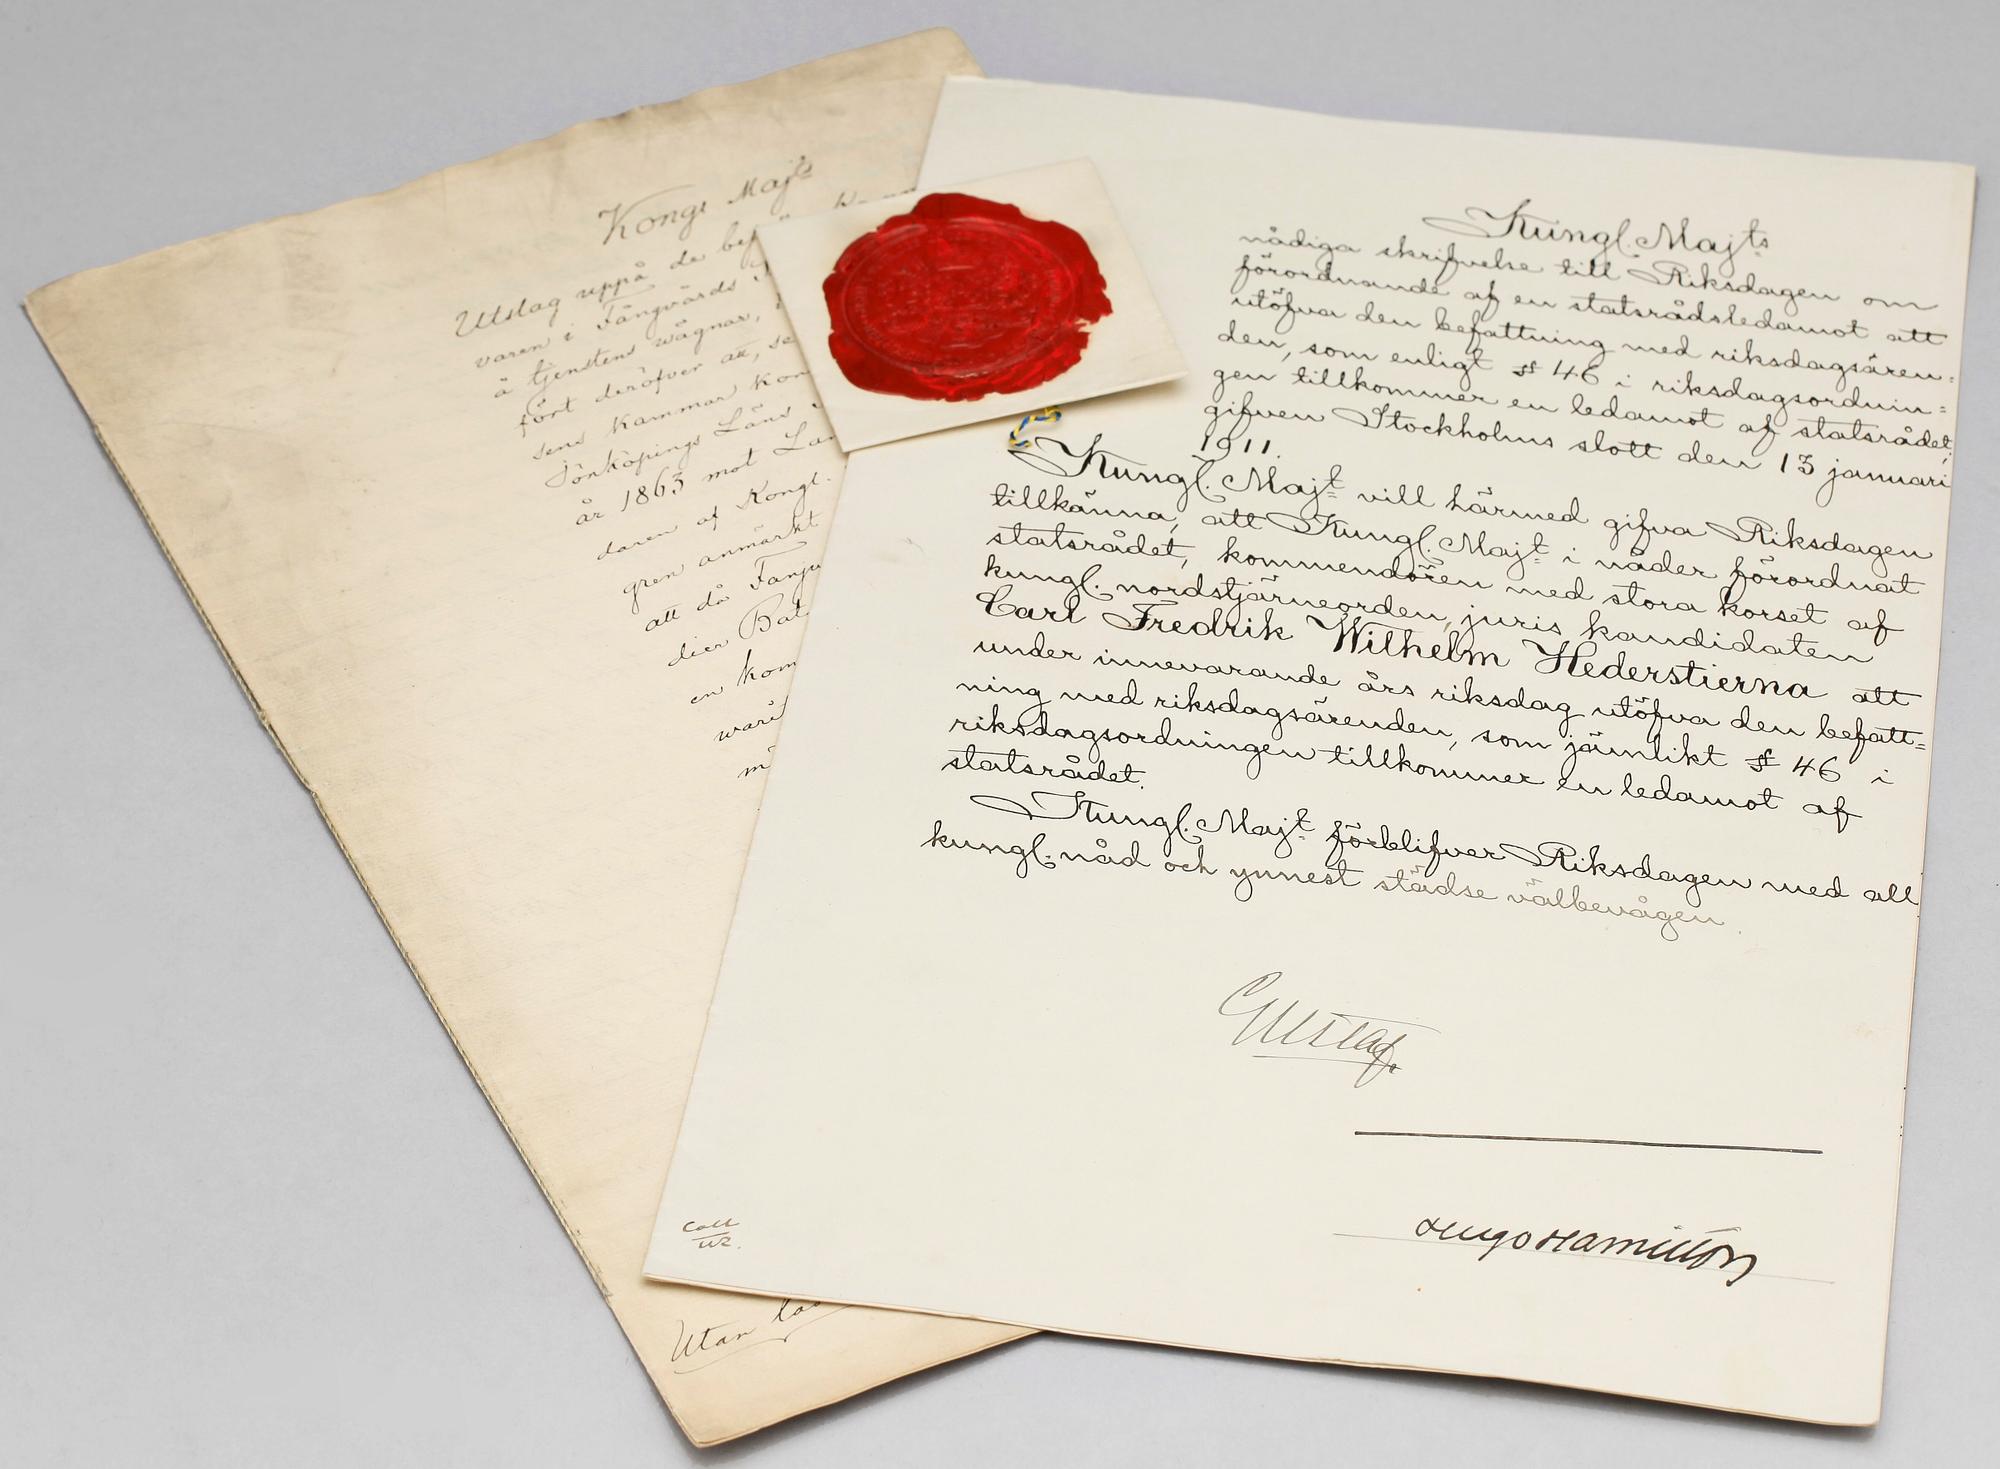 Kongl Majts
Utslag uppå de
varen i Fångvårds
å tjenstens wägnar,
fört deröfver att, se
sens Kammar Kon
Jönköpings Läns
år 1863 mot Lan
daren af Kongl.
gren anmärkt
att då Fångv
dier Bat
en kom
wari
m
Utan
Kungl. Majts
nådiga skrifvelse till Riksdagen om
förordnande af en statsrådsledamot att
utöfva den befattning med riksdagsären=
den, som enligt § 46 i riksdagsordnin=
gen tillkommer en ledamot af statsrådet;
gifven Stockholms slott den 13 januari
1911.
Kungl. Majt vill härmed gifva Riksdagen
tillkänna, att Kungl. Majt i nåder förordnat
statsrådet, kommendören med stora korset af
kungl. nordstjärneorden, juris kandidaten
Carl Fredrik Wilhelm Hederstierna att
under innevarande års riksdag utöfva den befatt=
ning med riksdagsärenden, som jämlikt § 46 i
riksdagsordningen tillkommer en ledamot af
statsrådet.
Kungl. Majt förblifver Riksdagen med all
kungl. nåd och ynnest städse välbevågen.
Gustaf.
Hugo Hamilton